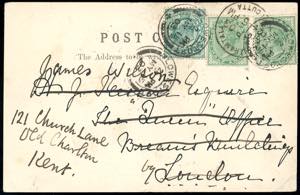 POST C
The Address to
James Wilson
Esquire
The Queen's Office
121 Church Lane
Old Charlton
Kent.
Bream's Buildings
by London.